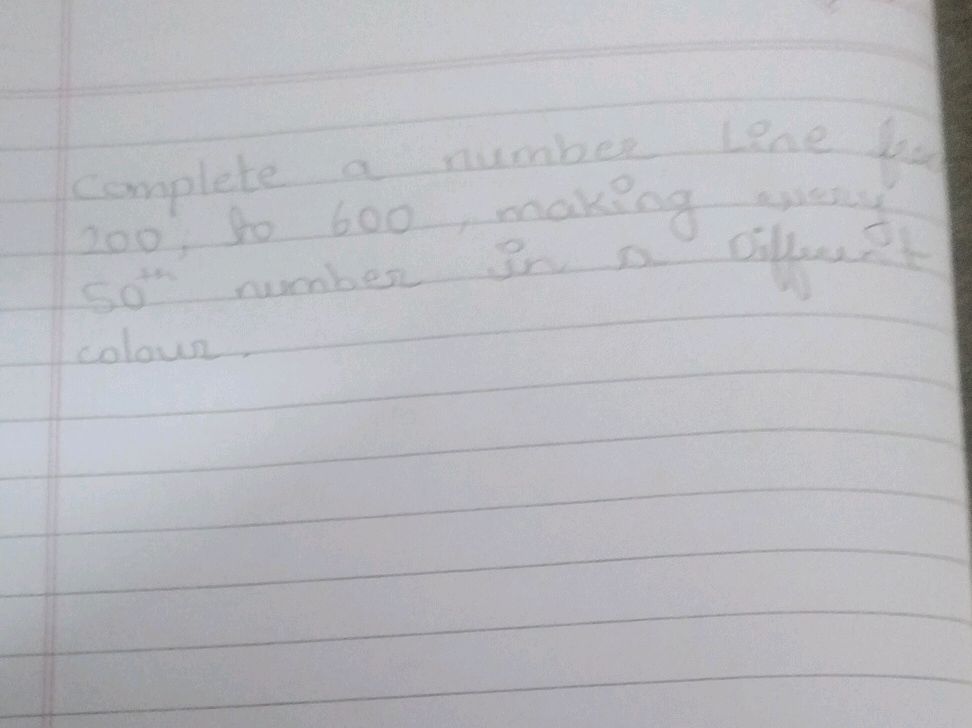 Complete a number Line
200, to 600, making every
50th number in a Different
colour.